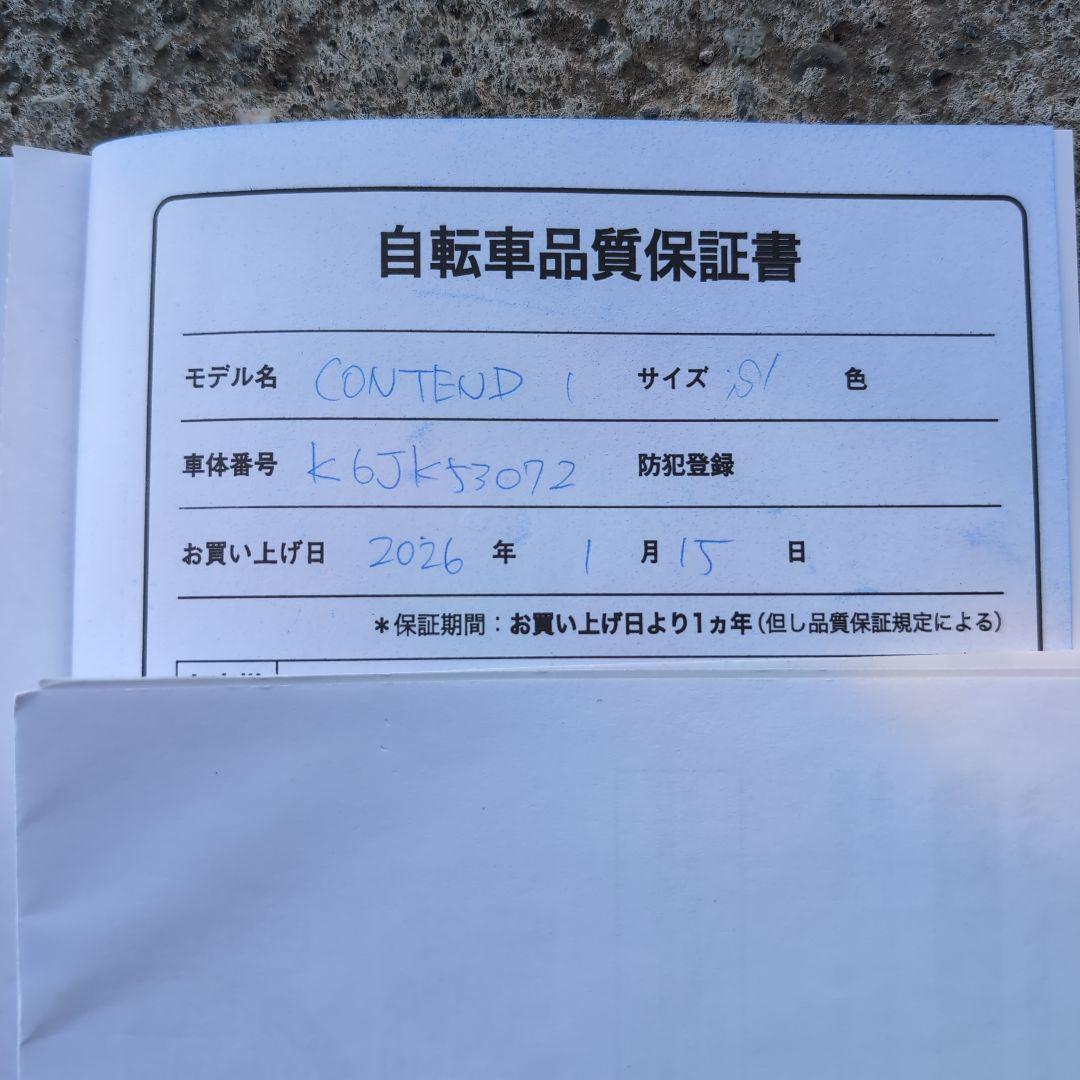 自転車品質保証書
モデル名 CONTEND 1 サイズ S 色
車体番号 K6JK53072 防犯登録
お買い上げ日 2026 年 1 月 15 日
*保証期間:お買い上げ日より1ヵ年(但し品質保証規定による)